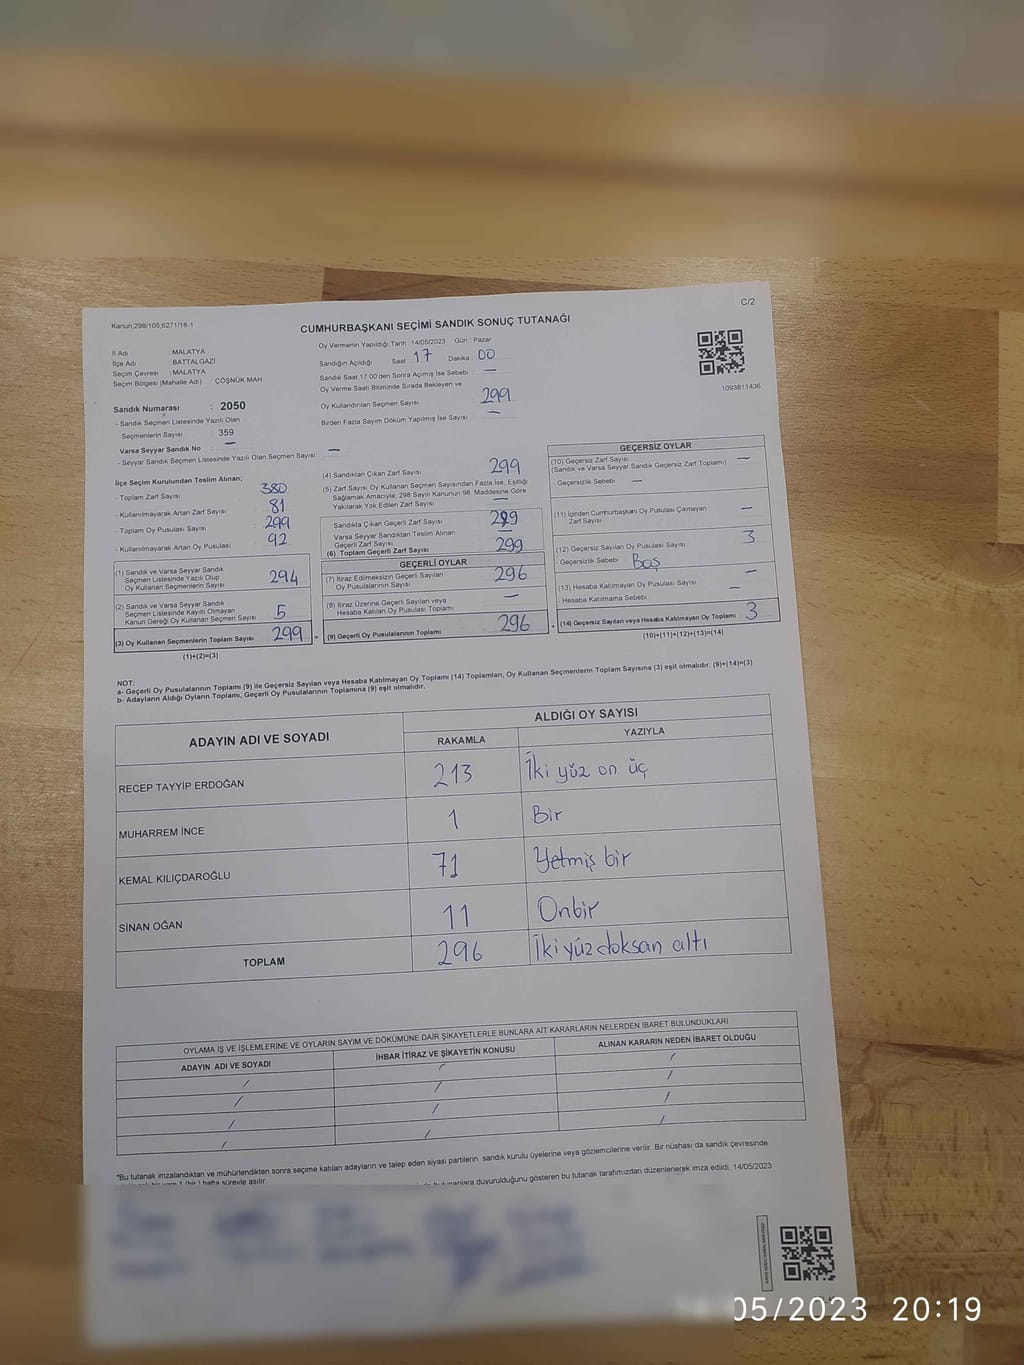 C/2
Kanun:298/105,6271/18-1
CUMHURBAŞKANI SEÇİMİ SANDIK SONUÇ TUTANAĞI
İl Adı : MALATYA
İlçe Adı : BATTALGAZİ
Seçim Çevresi : MALATYA
Seçim Bölgesi (Mahalle Adı) : ÇÖŞNÜK MAH.
Sandık Numarası : 2050
- Sandık Seçmen Listesinde Yazılı Olan
Seçmenlerin Sayısı : 359
Varsa Seyyar Sandık No : —
- Seyyar Sandık Seçmen Listesinde Yazılı Olan Seçmen Sayısı: —
Oy Vermenin Yapıldığı Tarih : 14/05/2023 Gün : Pazar
Sandığın Açıldığı Saat 17 Dakika 00
Sandık Saat 17:00'den Sonra Açımış İse Sebebi : —
Oy Verme Saati Bitiminde Sırada Bekleyen ve
Oy Kullandırılan Seçmen Sayısı 299
Birden Fazla Sayım Döküm Yapılmış İse Sayısı —
1093811436
İlçe Seçim Kurulundan Teslim Alınan;
- Toplam Zarf Sayısı 380
- Kullanılmayarak Artan Zarf Sayısı 81
- Toplam Oy Pusulası Sayısı 299
- Kullanılmayarak Artan Oy Pusulası 92
(1) Sandık ve Varsa Seyyar Sandık
Seçmen Listesinde Yazılı Olup
Oy Kullanan Seçmenlerin Sayısı 294
(2) Sandık ve Varsa Seyyar Sandık
Seçmen Listesinde Kayıtlı Olmayan
Kanun Gereği Oy Kullanan Seçmen Sayısı 5
(3) Oy Kullanan Seçmenlerin Toplam Sayısı 299
(1)+(2)=(3)
(4) Sandıktan Çıkan Zarf Sayısı 299
(5) Zarf Sayısı Oy Kullanan Seçmen Sayısından Fazla İse, Eşitliği
Sağlamak Amacıyla; 298 Sayılı Kanunun 98. Maddesine Göre
Yakılarak Yok Edilen Zarf Sayısı —
Sandıkta Çıkan Geçerli Zarf Sayısı 299
Varsa Seyyar Sandıktan Teslim Alınan
Geçerli Zarf Sayısı —
(6) Toplam Geçerli Zarf Sayısı 299
GEÇERLİ OYLAR
(7) İtiraz Edilmeksizin Geçerli Sayılan
Oy Pusulalarının Sayısı 296
(8) İtiraz Üzerine Geçerli Sayılan veya
Hesaba Katılan Oy Pusulası Toplamı —
= (9) Geçerli Oy Pusulalarının Toplamı 296
GEÇERSİZ OYLAR
(10) Geçersiz Zarf Sayısı
(Sandık ve Varsa Seyyar Sandık Geçersiz Zarf Toplamı) —
- Geçersizlik Sebebi —
(11) İçinden Cumhurbaşkanı Oy Pusulası Çıkmayan
Zarf Sayısı —
(12) Geçersiz Sayılan Oy Pusulası Sayısı 3
Geçersizlik Sebebi Boş
(13) Hesaba Katılmayan Oy Pusulası Sayısı —
- Hesaba Katılmama Sebebi —
+ (14) Geçersiz Sayılan veya Hesaba Katılmayan Oy Toplamı 3
(10)+(11)+(12)+(13)=(14)
NOT:
a- Geçerli Oy Pusulalarının Toplamı (9) ile Geçersiz Sayılan veya Hesaba Katılmayan Oy Toplamı (14) Toplamları, Oy Kullanan Seçmenlerin Toplam Sayısına (3) eşit olmalıdır. (9)+(14)=(3)
b- Adayların Aldığı Oyların Toplamı, Geçerli Oy Pusulalarının Toplamına (9) eşit olmalıdır.
ADAYIN ADI VE SOYADI
ALDIĞI OY SAYISI
RAKAMLA YAZIYLA
RECEP TAYYİP ERDOĞAN 213 İki yüz on üç
MUHARREM İNCE 1 Bir
KEMAL KILIÇDAROĞLU 71 Yetmiş bir
SİNAN OĞAN 11 Onbir
TOPLAM 296 İki yüz doksan altı
OYLAMA İŞ VE İŞLEMLERİNE VE OYLARIN SAYIM VE DÖKÜMÜNE DAİR ŞİKAYETLERLE BUNLARA AİT KARARLARIN NELERDEN İBARET BULUNDUKLARI
ADAYIN ADI VE SOYADI İHBAR İTİRAZ VE ŞİKAYETİN KONUSU ALINAN KARARIN NEDEN İBARET OLDUĞU
/ / /
/ / /
/ / /
/ / /
*Bu tutanak imzalandıktan ve mühürlendikten sonra seçime katılan adayların ve talep eden siyasi partilerin sandık kurulu üyelerine veya gözlemcilerine verilir. Bir nüshası da sandık çevresinde
1 (bir) hafta süreyle asılır.
duyurulduğunu gösteren bu tutanak tarafımızdan düzenlenerek imza edildi. 14/05/2023
05/2023 20:19